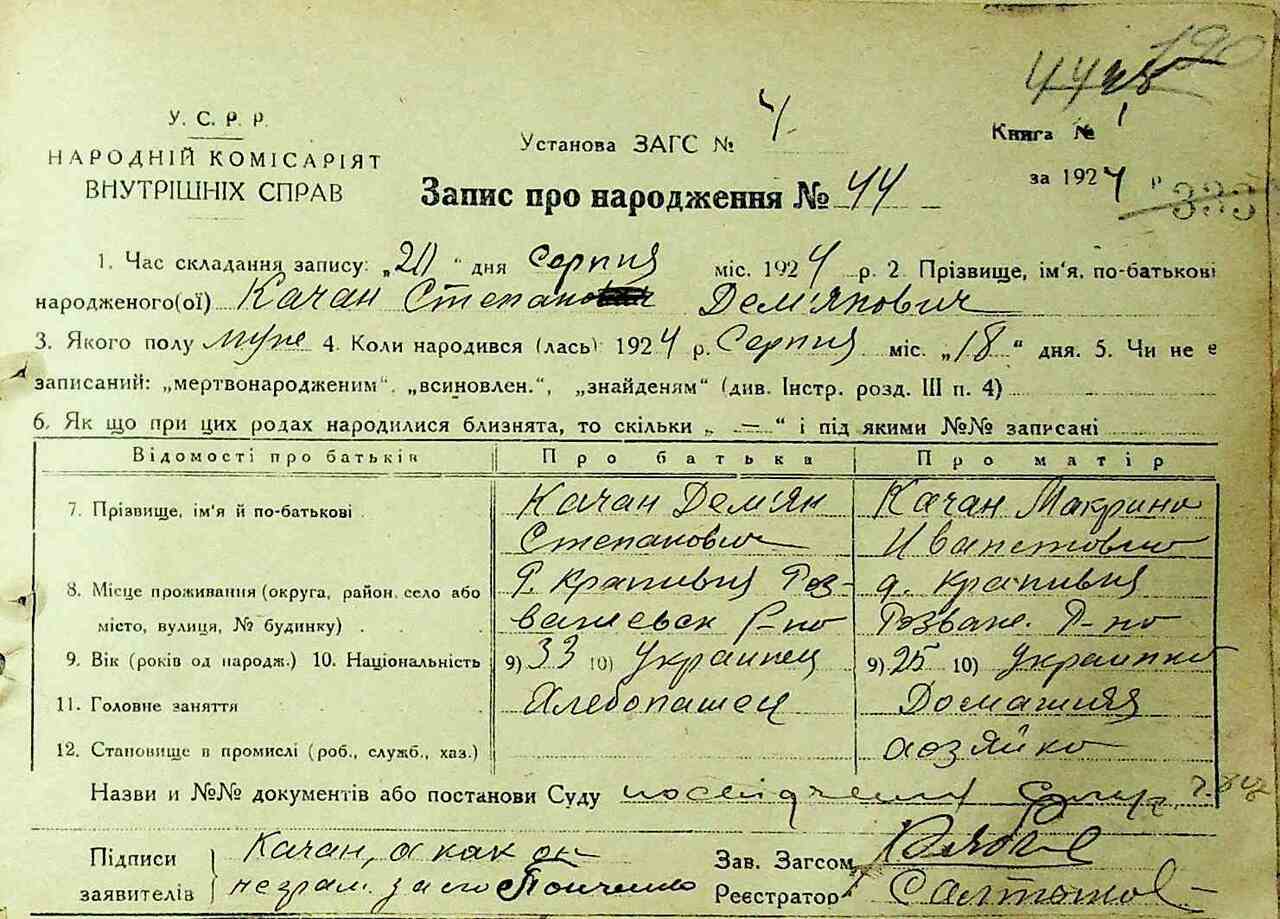 44
190
У. С. Р. Р.
НАРОДНІЙ КОМІСАРІЯТ
ВНУТРІШНІХ СПРАВ
Установа ЗАГС № 4
Книга № 1
за 1924 р.
333
Запис про народження № 44
1. Час складання запису: „20“ дня Серпня міс. 1924 р. 2. Прізвище, ім'я, по-батькові
народженого(ої) Качан Степан Дем'янович
3. Якого полу муже 4. Коли народився (лась) 1924 р. Серпня міс. „18“ дня. 5. Чи не є
записаний: „мертвонародженим“, „всиновлен.“, „знайденям“ (див. Інстр. розд. III п. 4)
6. Як що при цих родах народилися близнята, то скільки „ — “ і під якими №№ записані
Відомості про батьків Про батька Про матір
7. Прізвище, ім'я й по-батькові Качан Дем'ян Качан Макрина
Степанович Ивановна
8. Місце проживання (округа, район, село або Крапивня Роз- д. Крапивня
місто, вулиця, № будинку) важевск Р-на Розваж. Р-на
9. Вік (років од народж.) 10. Національність 9) 33 10) Украинец 9) 25 10) Украинка
11. Головне заняття Хлебопашец Домашняя
12. Становище в промислі (роб., служб., хаз.) хозяйка
Назви и №№ документів або постанови Суду
Підписи Качан, а как он Зав. Загсом
заявителів неграм. за его Реєстратор